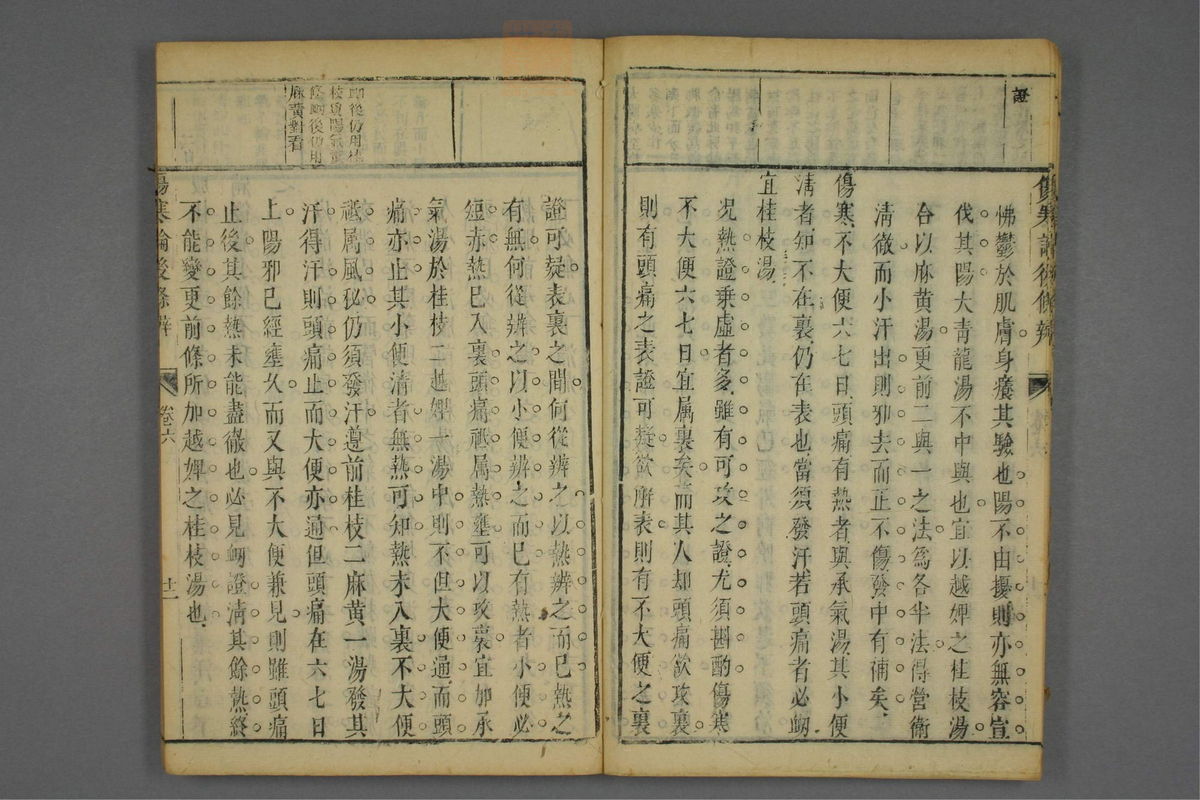 證
怫鬱於肌膚身癢其驗也陽不由擾則亦無容宣
伐其陽大青龍湯不中與也宜以越婢之桂枝湯
合以麻黄湯更前二與一之法爲各半法得營衛
清徹而小汗出則邪去而正不傷發中有補矣
傷寒不大便六七日頭痛有熱者與承氣湯其小便
清者知不在裏仍在表也當須發汗若頭痛者必衂
宜桂枝湯
况熱證乗虛者多雖有可攻之證尤須斟酌傷寒
不大便六七日宜属裏矣而其人却頭痛欲攻裏
則有頭痛之表證可疑欲解表則有不大便之裏
傷寒論後條辨
卽後仍用桂
枝
衂後仍用
麻黄對看
證可疑表裏之間何從辨之以熱辨之而已熱之
有無何從辨之以小便辨之而已有熱者小便必
短赤熱已入裏頭痛祗属熱壅可以攻裏宜加承
氣湯於桂枝二越婢一湯中則不但大便通而頭
痛亦止其小便清者無熱可知熱未入裏不大便
祗属風秘仍須發汗遵前桂枝二麻黄一湯發其
汗得汗則頭痛止而大便亦通但頭痛在六七日
上陽邪已經壅久而又與不大便兼見則雖頭痛
止後其餘熱未能盡徹也必見衂證清其餘熱終
不能變更前條所加越婢之桂枝湯也
傷寒論後條辨
卷六
十二